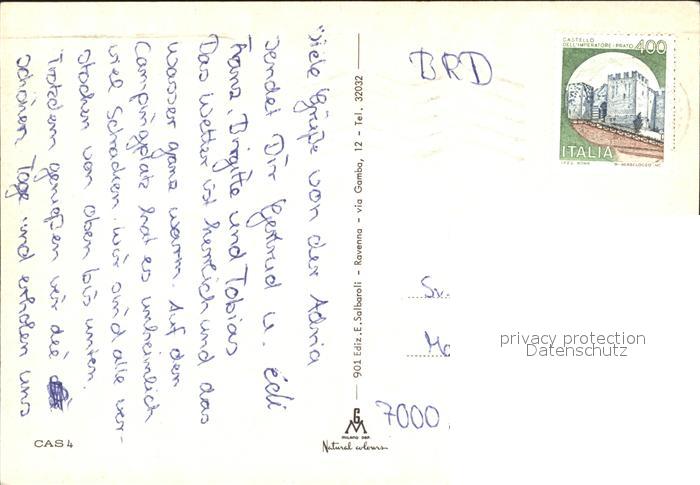 Viele Grüße von der Adria
sendet Dir Gertrud u. Edi
Franz, Birgitte und Tobias
Das Wetter ist herrlich und das
Wasser ganz warm. Auf dem
Campingplatz hat es unheimlich
viel Schnaken. Wir sind alle ver-
stochen von oben bis unten.
Trotzdem genießen wir die
schönen Tage und erholen uns
CAS 4
901 Ediz. E. Salbaroli - Ravenna - via Gamba, 12 - Tel. 32032
MILANO DEP.
Natural colours
BRD
CASTELLO
DELL'IMPERATORE-PRATO 400
ITALIA
7000
privacy protection
Datenschutz